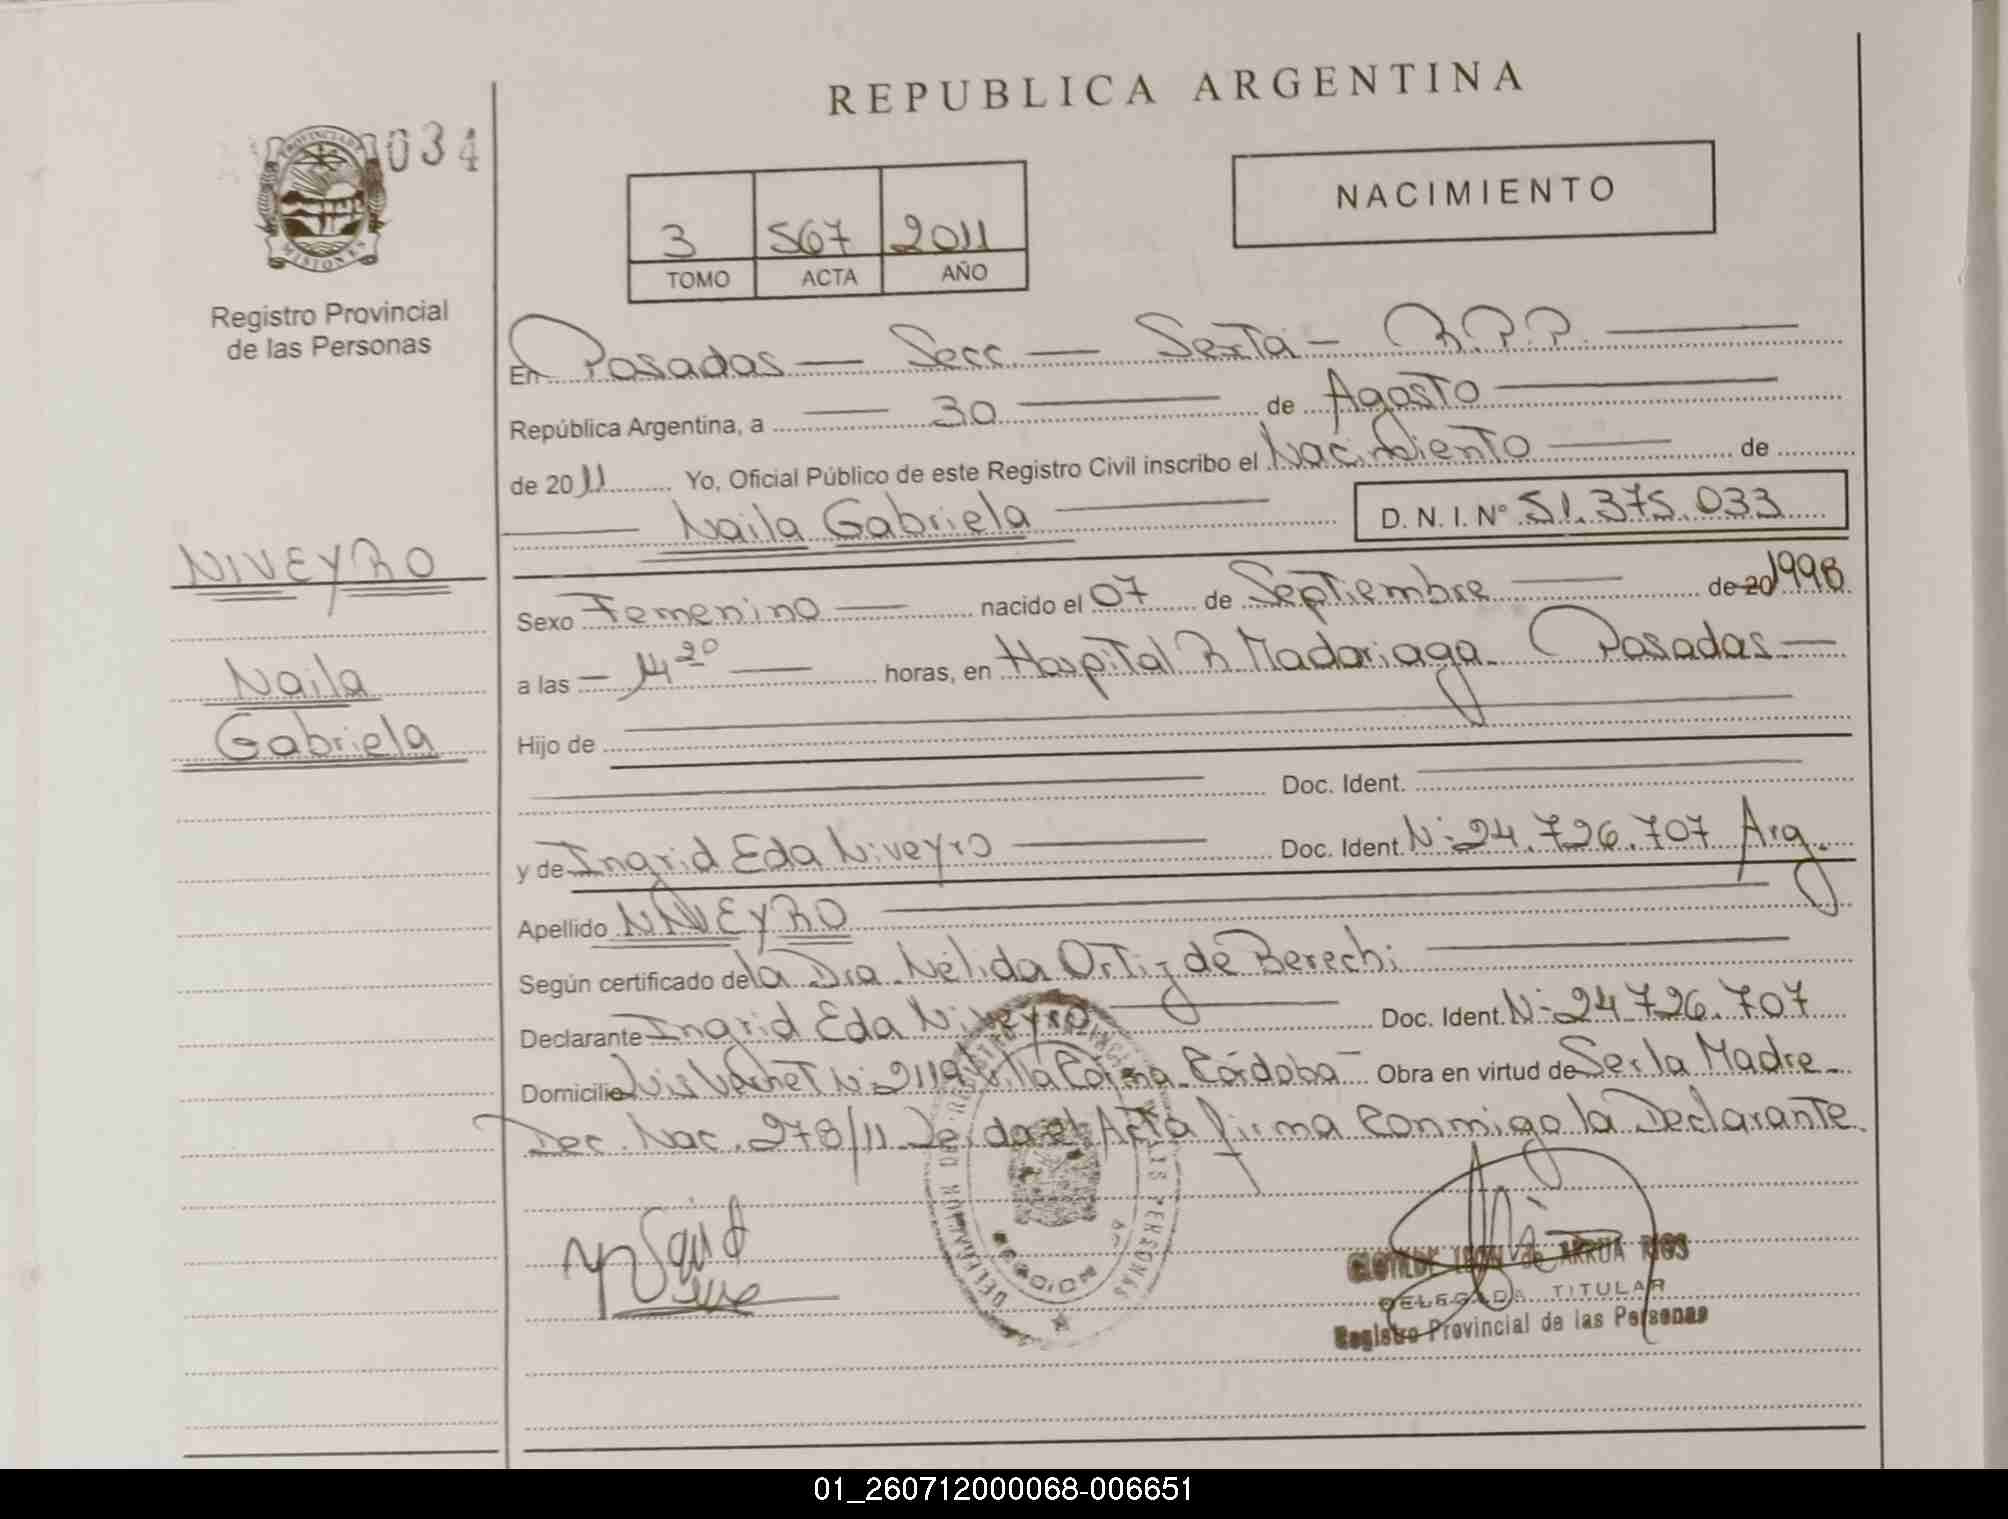 REPUBLICA ARGENTINA
034
PROVINCIA DE MISIONES
Registro Provincial
de las Personas
NACIMIENTO
3 567 2011
TOMO ACTA AÑO
En Posadas — Secc. — Sexta — R.P.P.
República Argentina, a — 30 — de Agosto
de 2011 Yo, Oficial Público de este Registro Civil inscribo el Nacimiento — de
— Naila Gabriela — D. N. I. Nº 51.375.033
NIVEYRO
Naila
Gabriela
Sexo Femenino — nacido el 07 de Septiembre — de 20 1998
a las — 14 20 — horas, en Hospital R Madariaga. Posadas —
Hijo de
Doc. Ident.
y de Ingrid Eda Niveyro — Doc. Ident. Nº 24.726.707 Arg.
Apellido NIVEYRO
Según certificado de la Dra. Nélida Ortiz de Berechi
Declarante Ingrid Eda Niveyro — Doc. Ident. Nº 24.726.707
Domicilio Luis Vernet Nº 2119 Villa Córdoba — Obra en virtud de Ser la Madre.
Dec. Nac. 278/11 Leida el Acta firma Conmigo la Declarante.
CLOTILDE de ARRUA RIOS
DELEGADA TITULAR
Registro Provincial de las Personas
01_260712000068-006651